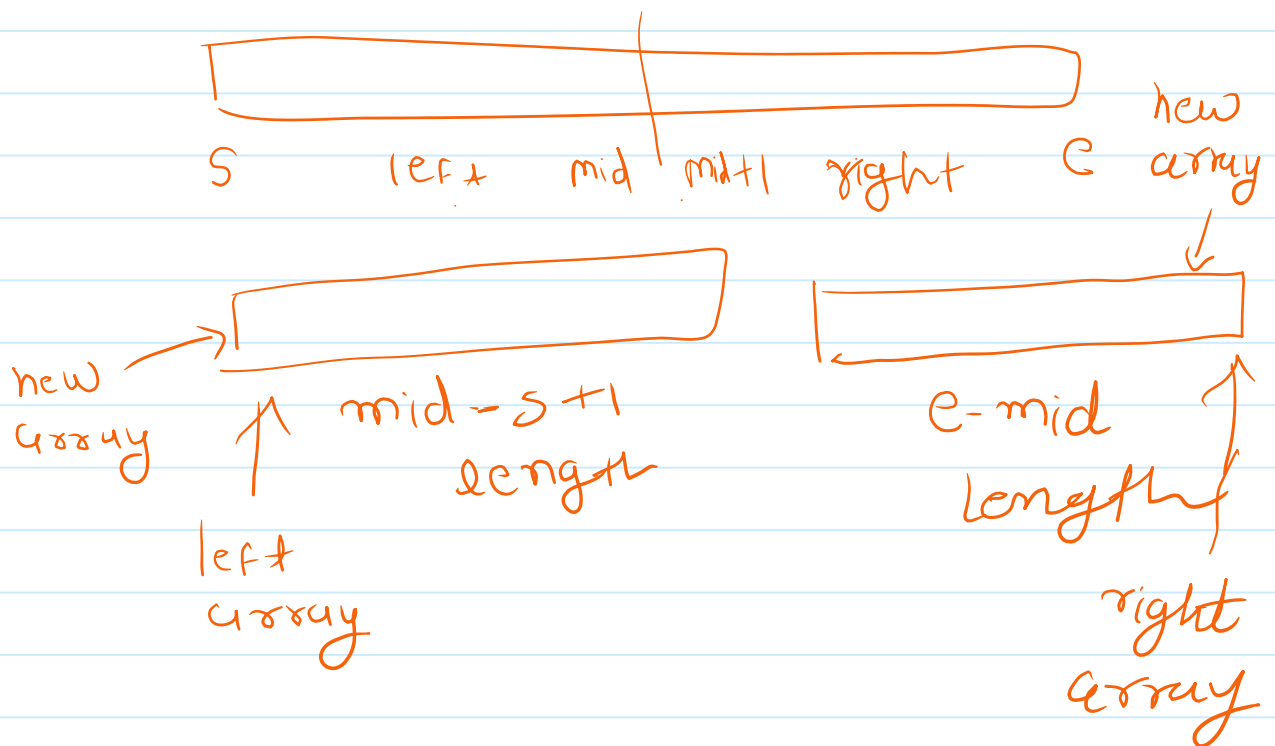 S left mid mid+1 right e
new
array
new
array
mid-s+1
length
e-mid
length
left
array
right
array